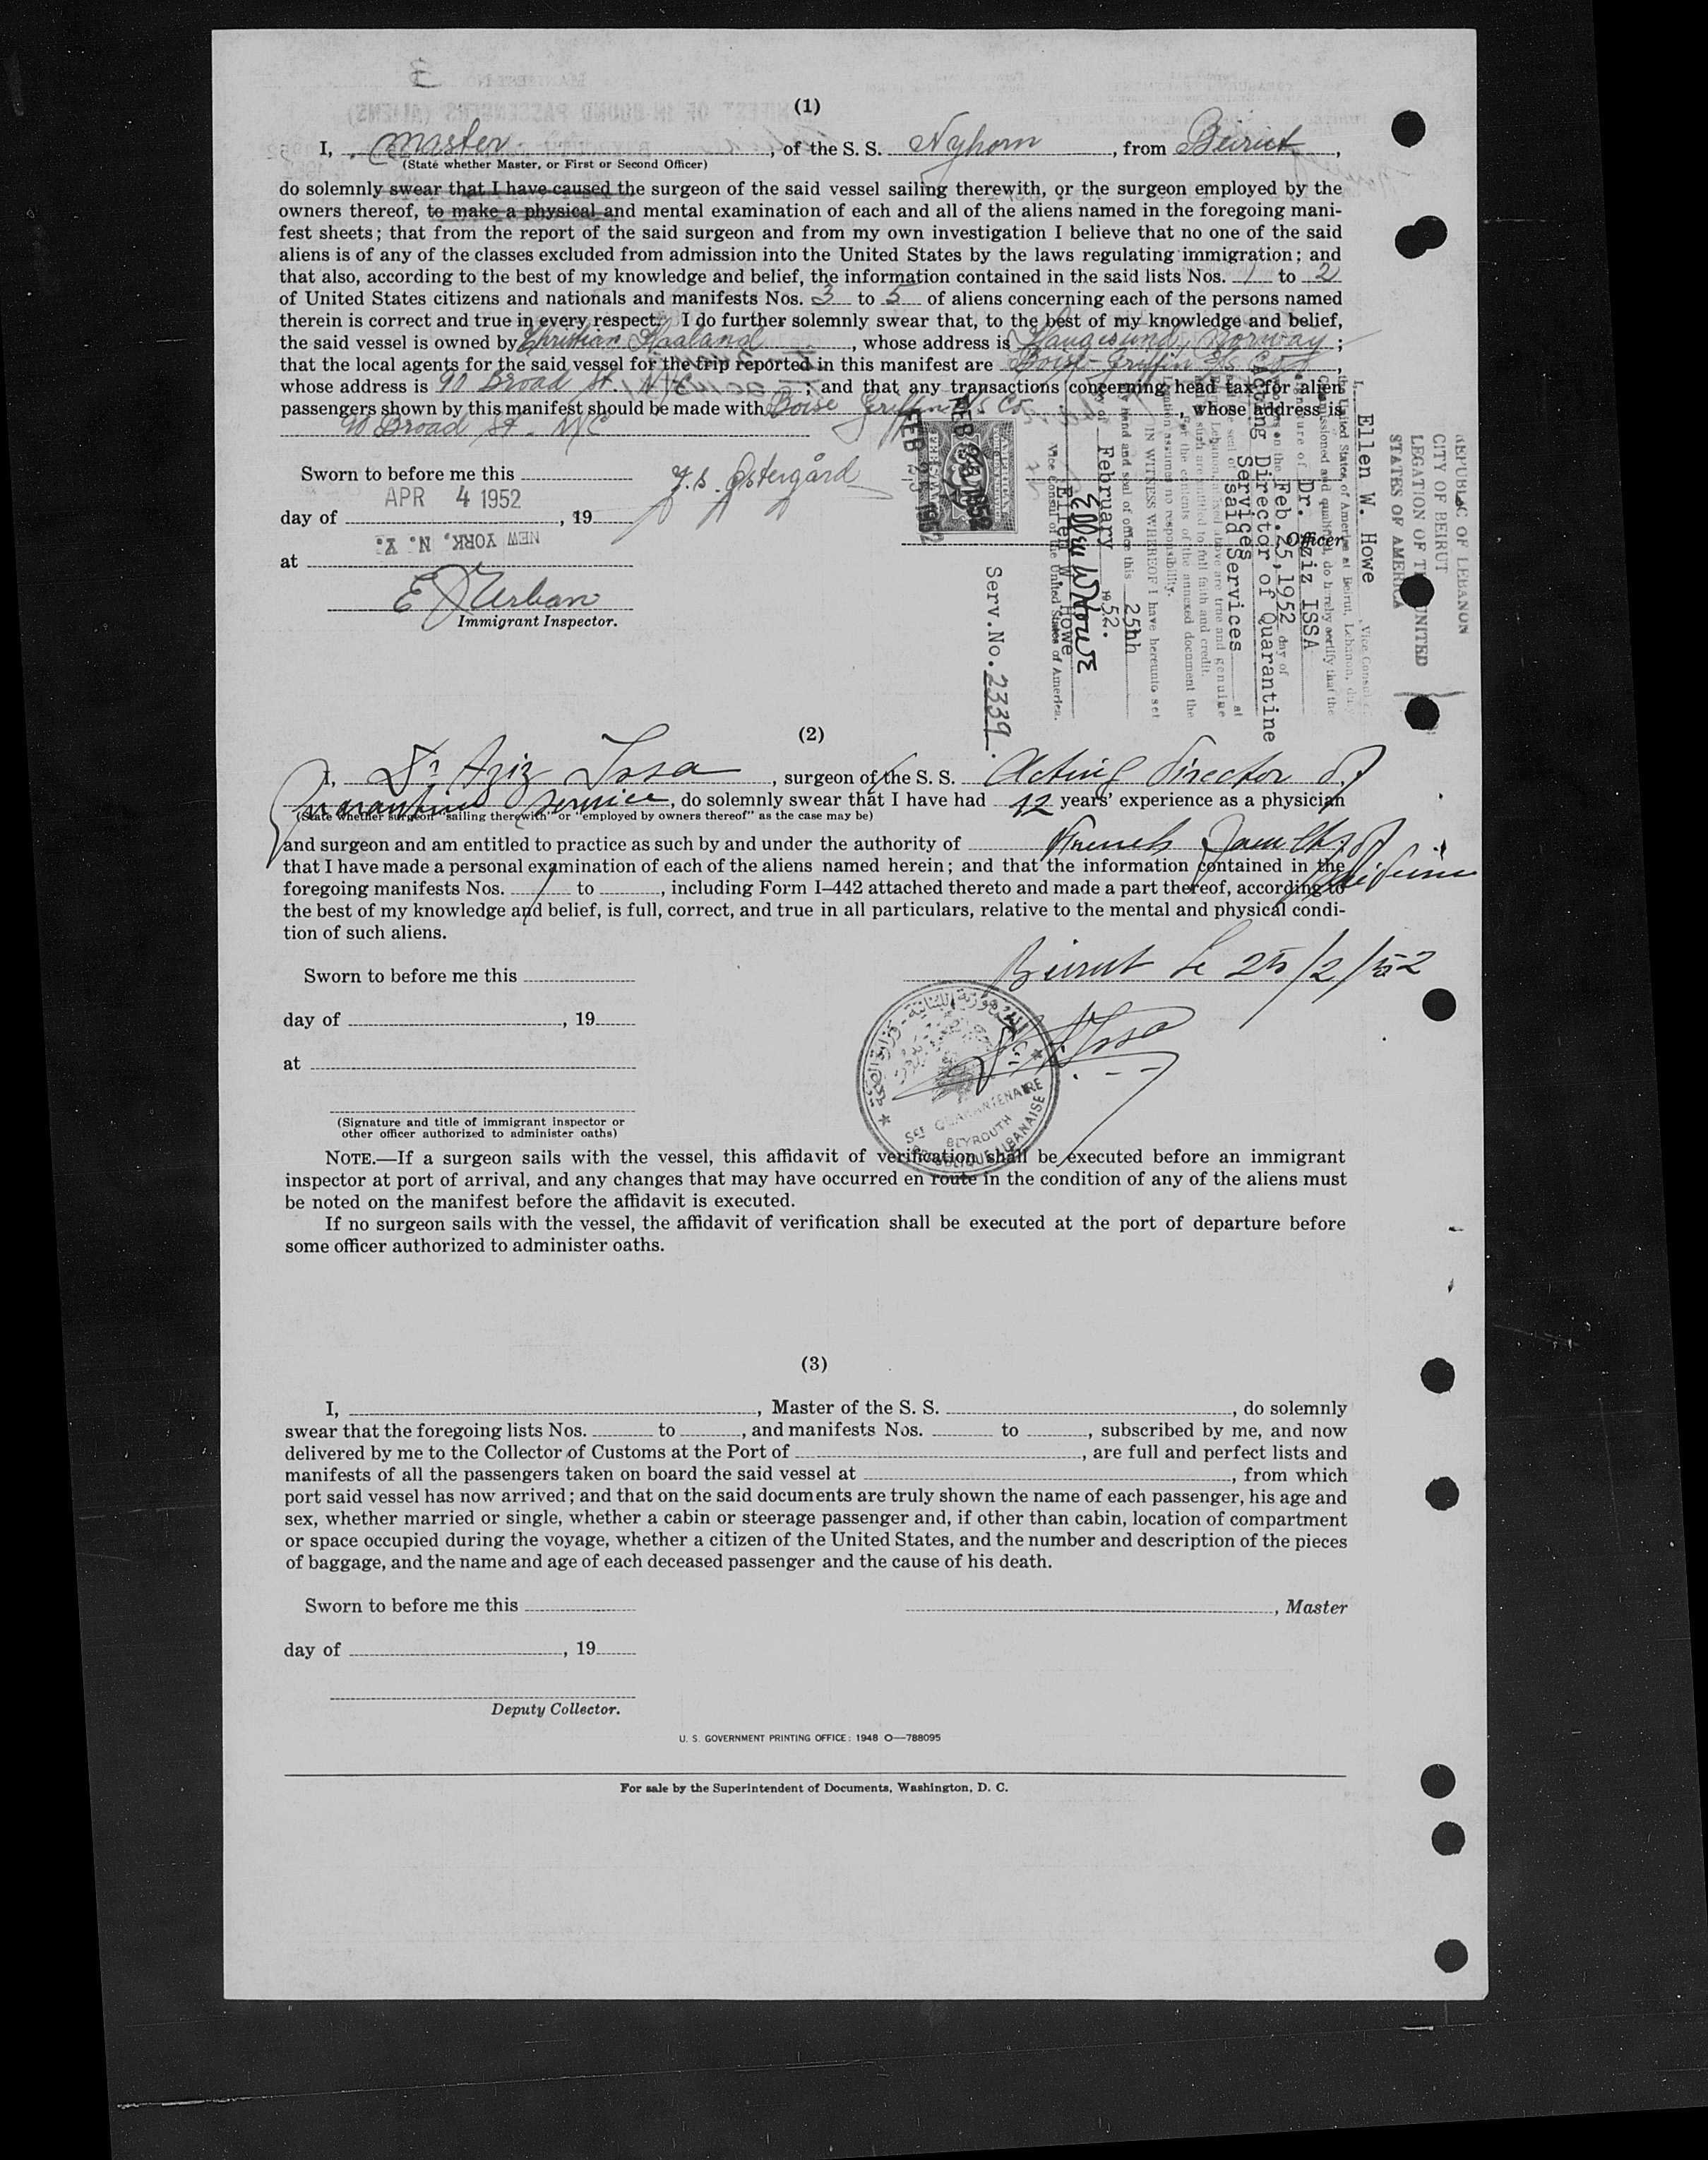 (1)
I, Master, of the S. S. Nyhorn, from Beirut,
(State whether Master, or First or Second Officer)
do solemnly swear that I have caused the surgeon of the said vessel sailing therewith, or the surgeon employed by the
owners thereof, to make a physical and mental examination of each and all of the aliens named in the foregoing mani-
fest sheets; that from the report of the said surgeon and from my own investigation I believe that no one of the said
aliens is of any of the classes excluded from admission into the United States by the laws regulating immigration; and
that also, according to the best of my knowledge and belief, the information contained in the said lists Nos. 1 to 2
of United States citizens and nationals and manifests Nos. 3 to 5 of aliens concerning each of the persons named
therein is correct and true in every respect. I do further solemnly swear that, to the best of my knowledge and belief,
the said vessel is owned by Christian Haaland, whose address is Haugesund, Norway;
that the local agents for the said vessel for the trip reported in this manifest are Boise-Griffin S/S Co,
whose address is 90 Broad St. NYC; and that any transactions concerning head tax for alien
passengers shown by this manifest should be made with Boise Griffin S/S Co., whose address is
90 Broad St. NYC
Sworn to before me this
APR 4 1952
day of , 19
NEW YORK, N. Y.
at
E J Urban
Immigrant Inspector.
J. S. Østergård
Officer
FEB 25 1952
REPUBLIC OF LEBANON
CITY OF BEIRUT
LEGATION OF THE UNITED
STATES OF AMERICA
I, Ellen W. Howe, Vice Consul of
the United States of America at Beirut, Lebanon, duly
commissioned and qualified, do hereby certify that the
signature of Dr. Aziz ISSA
on the Feb. 25, 1952 day of
Acting Director of Quarantine
Services
seal of said Services at
Lebanon above are true and genuine
and as such are entitled to full faith and credit.
For the contents of the annexed document the
assumes no responsibility.
IN WITNESS WHEREOF I have hereunto set
my hand and seal of office this 25hh
day of February 1952.
Ellen W Howe
Ellen W. Howe
Vice Consul of the United States of America.
Serv.No. 2339.
(2)
I, Dr Aziz Issa, surgeon of the S. S. Acting director of
Quarantine service, do solemnly swear that I have had 12 years' experience as a physician
(State whether surgeon "sailing therewith" or "employed by owners thereof" as the case may be)
and surgeon and am entitled to practice as such by and under the authority of French Faculty of Medicine
that I have made a personal examination of each of the aliens named herein; and that the information contained in the
foregoing manifests Nos. 1 to , including Form I–442 attached thereto and made a part thereof, according to
the best of my knowledge and belief, is full, correct, and true in all particulars, relative to the mental and physical condi-
tion of such aliens.
Beirut le 25/2/52
Sworn to before me this
day of , 19
at
Issa
الجمهورية اللبنانية - وزارة الصحة
SCE QUARANTENAIRE
BEYROUTH
REPUBLIQUE LIBANAISE
(Signature and title of immigrant inspector or
other officer authorized to administer oaths)
NOTE.—If a surgeon sails with the vessel, this affidavit of verification shall be executed before an immigrant
inspector at port of arrival, and any changes that may have occurred en route in the condition of any of the aliens must
be noted on the manifest before the affidavit is executed.
If no surgeon sails with the vessel, the affidavit of verification shall be executed at the port of departure before
some officer authorized to administer oaths.
(3)
I, , Master of the S. S. , do solemnly
swear that the foregoing lists Nos. to , and manifests Nos. to , subscribed by me, and now
delivered by me to the Collector of Customs at the Port of , are full and perfect lists and
manifests of all the passengers taken on board the said vessel at , from which
port said vessel has now arrived; and that on the said documents are truly shown the name of each passenger, his age and
sex, whether married or single, whether a cabin or steerage passenger and, if other than cabin, location of compartment
or space occupied during the voyage, whether a citizen of the United States, and the number and description of the pieces
of baggage, and the name and age of each deceased passenger and the cause of his death.
Sworn to before me this
, Master
day of , 19
Deputy Collector.
U. S. GOVERNMENT PRINTING OFFICE: 1948 O—788095
For sale by the Superintendent of Documents, Washington, D. C.